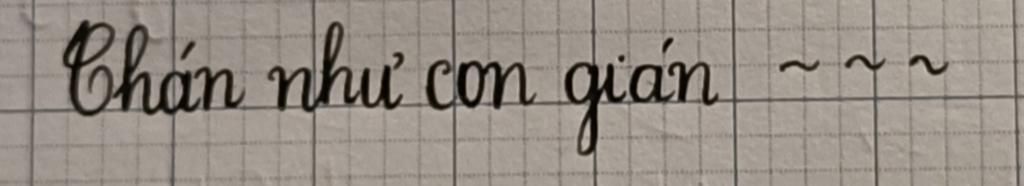 Chán như con gián ~ ~ ~